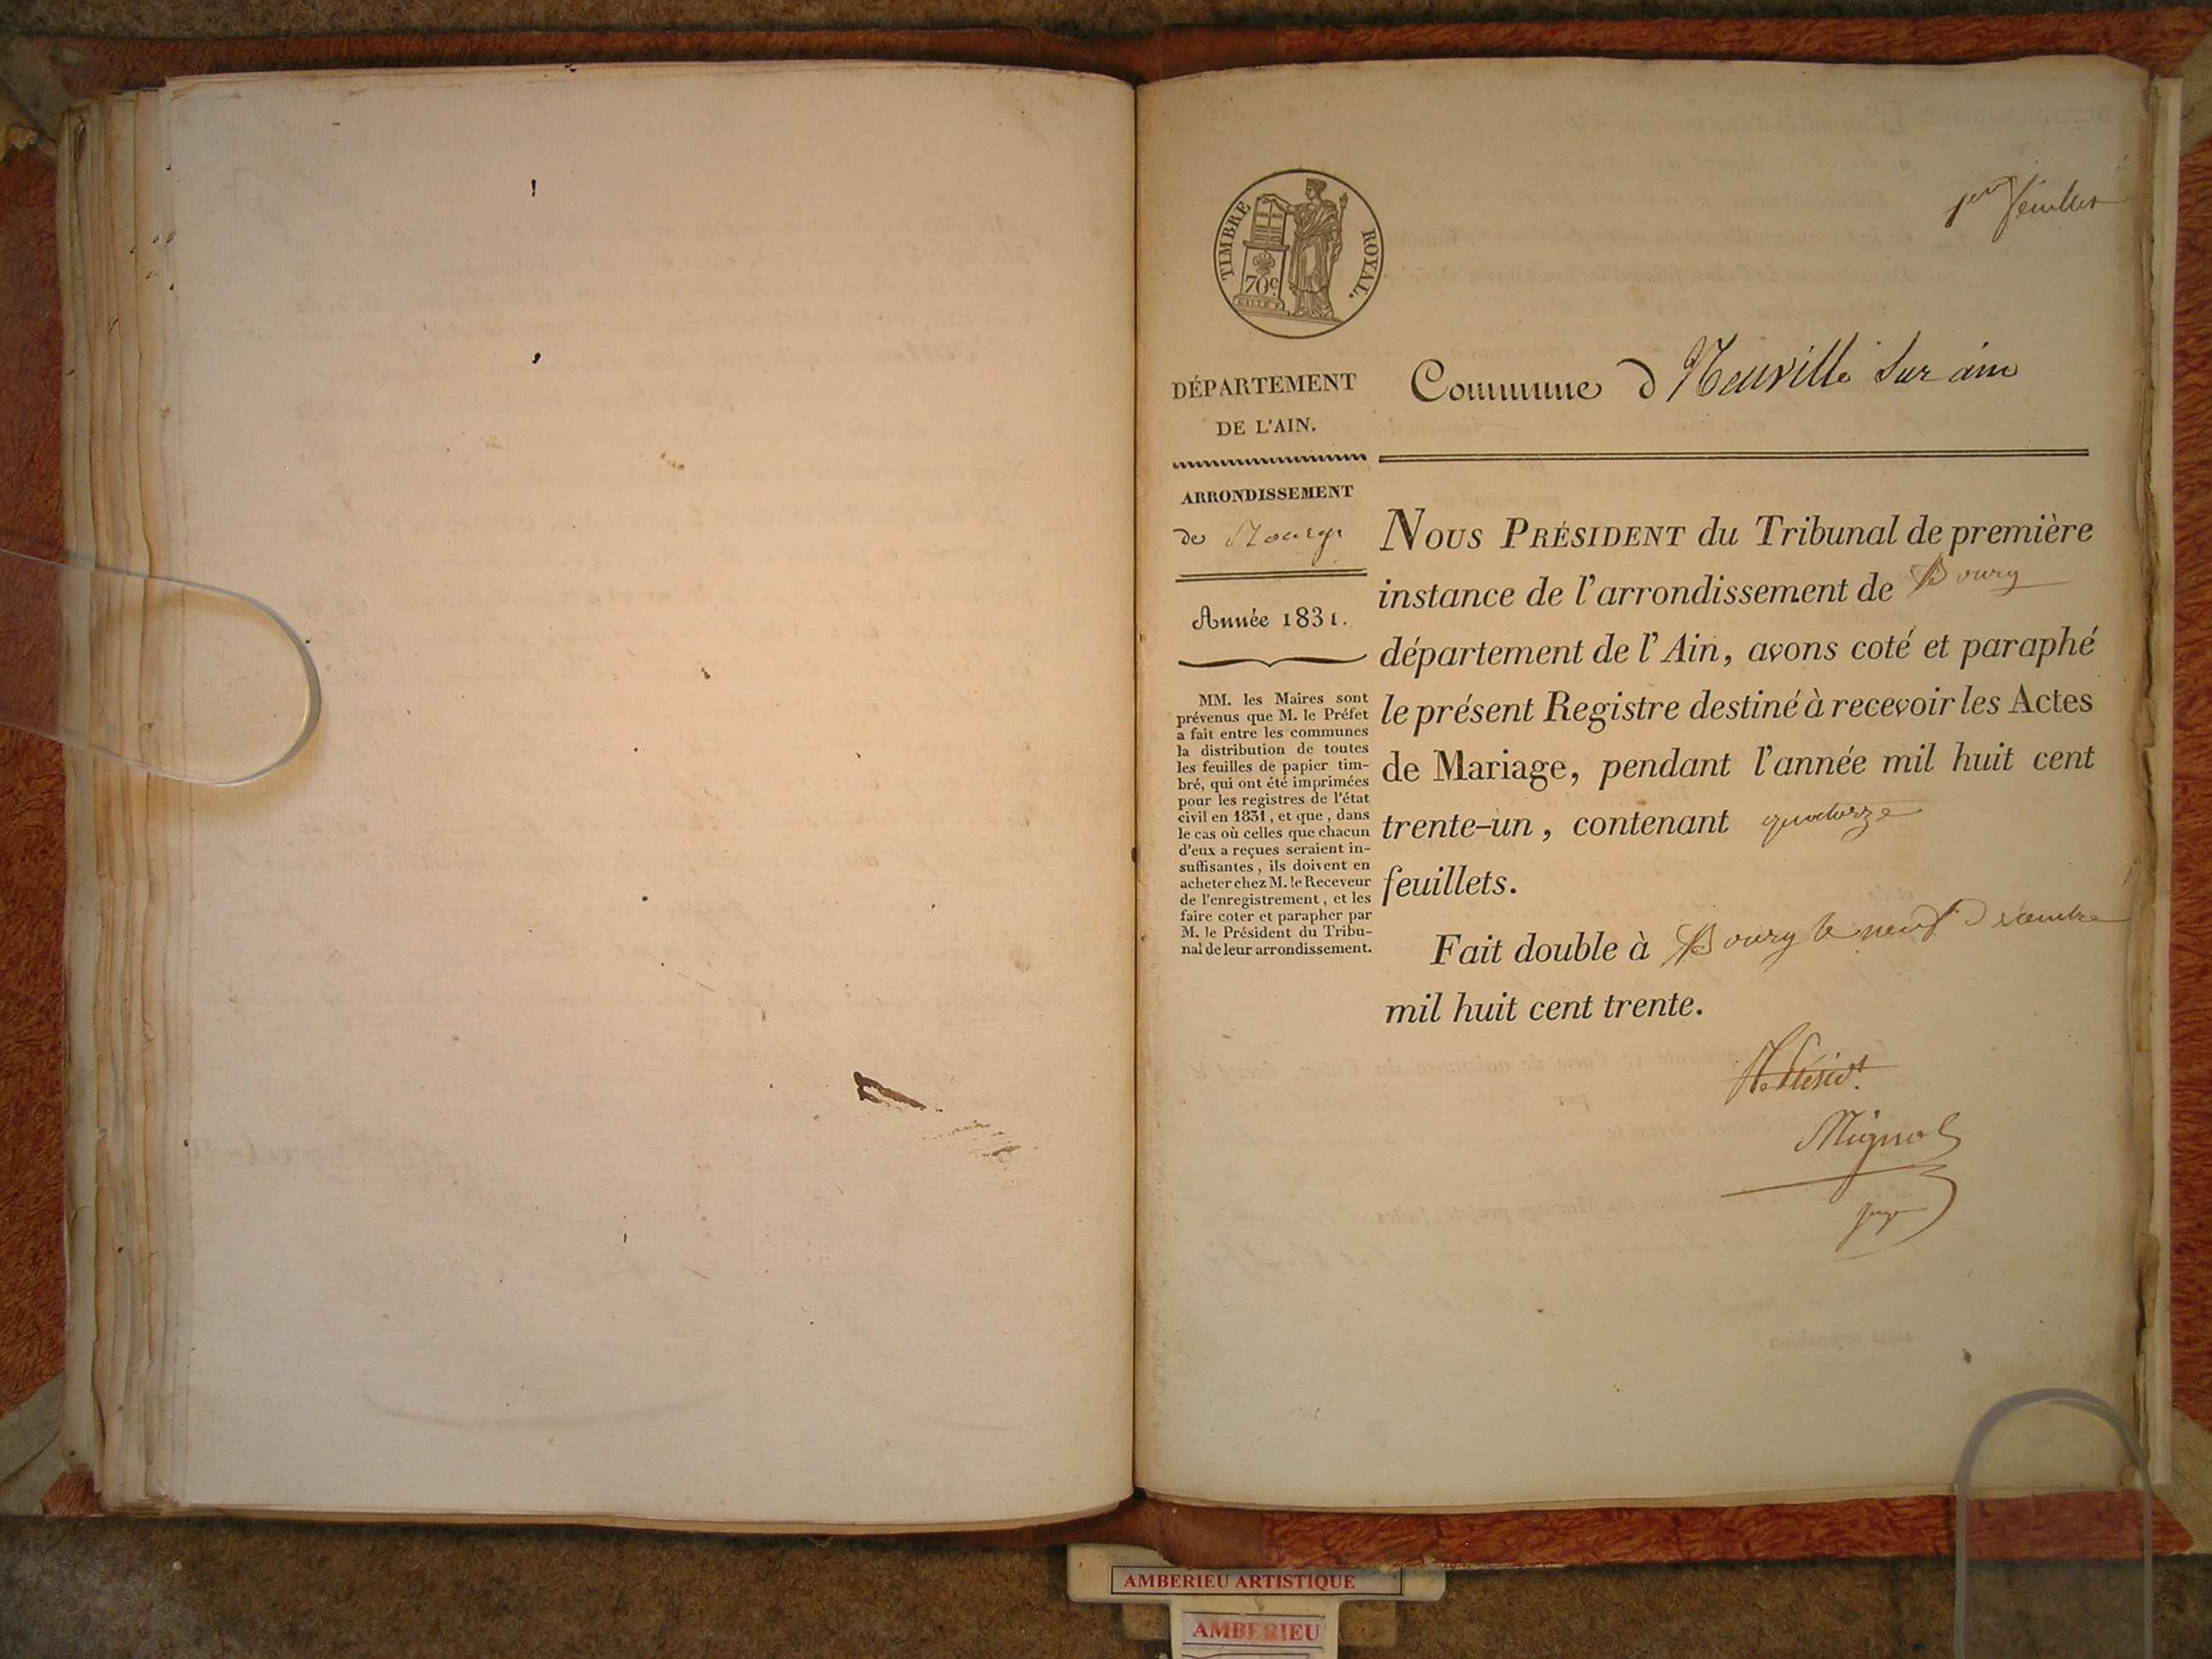 1er feuillet
TIMBRE ROYAL.
70 c.
DÉPARTEMENT
DE L'AIN.
Commune d Neuville sur ain
ARRONDISSEMENT
de Bourg
Année 1831.
MM. les Maires sont
prévenus que M. le Préfet
a fait entre les communes
la distribution de toutes
les feuilles de papier tim-
bré, qui ont été imprimées
pour les registres de l'état
civil en 1831, et que, dans
le cas où celles que chacun
d'eux a reçues seraient in-
suffisantes, ils doivent en
acheter chez M. le Receveur
de l'enregistrement, et les
faire coter et parapher par
M. le Président du Tribu-
nal de leur arrondissement.
NOUS PRÉSIDENT du Tribunal de première
instance de l'arrondissement de Bourg
département de l'Ain, avons coté et paraphé
le présent Registre destiné à recevoir les Actes
de Mariage, pendant l'année mil huit cent
trente-un, contenant quatorze
feuillets.
Fait double à Bourg le neuf Décembre
mil huit cent trente.
juge
AMBERIEU ARTISTIQUE
AMBERIEU